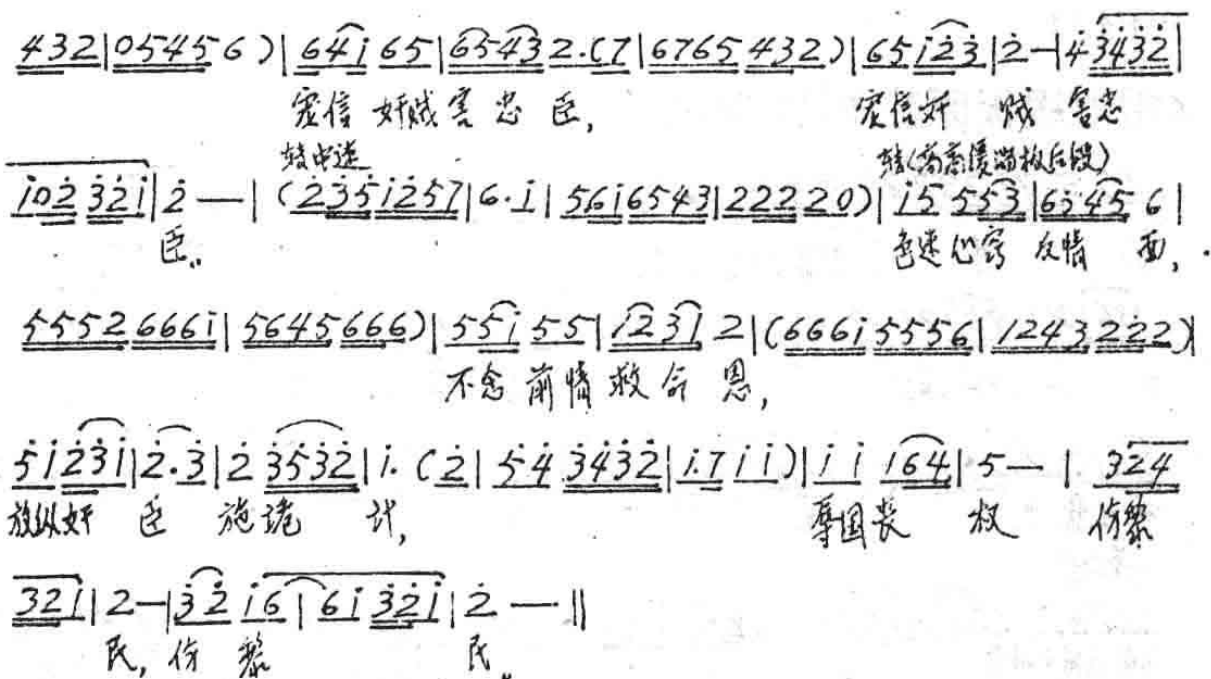 432|05456)|64i 65|65432.(7|6765 432)|65i23|2—|43432|
宠信 奸贼害忠臣, 宠信奸 贼 害忠
转中速 转(
i02 32i|2—|(235i257|6.i|56i6543|22220)|i5 553|6545 6|
臣。 色迷心窍 反情 面,
5552 666i|5645666)|55i 55|1231 2|(666i 5556|1243222)|
不念 前情 救命 恩,
5i23i|2.3|2 3532|i.(2|54 3432|i.7 i i)|i i i64|5—|324
放纵奸 臣 施诡 计, 辱国丧 权 伤黎
32i|2—|32 i6|6i 32i|2—‖
民, 伤 黎 民。